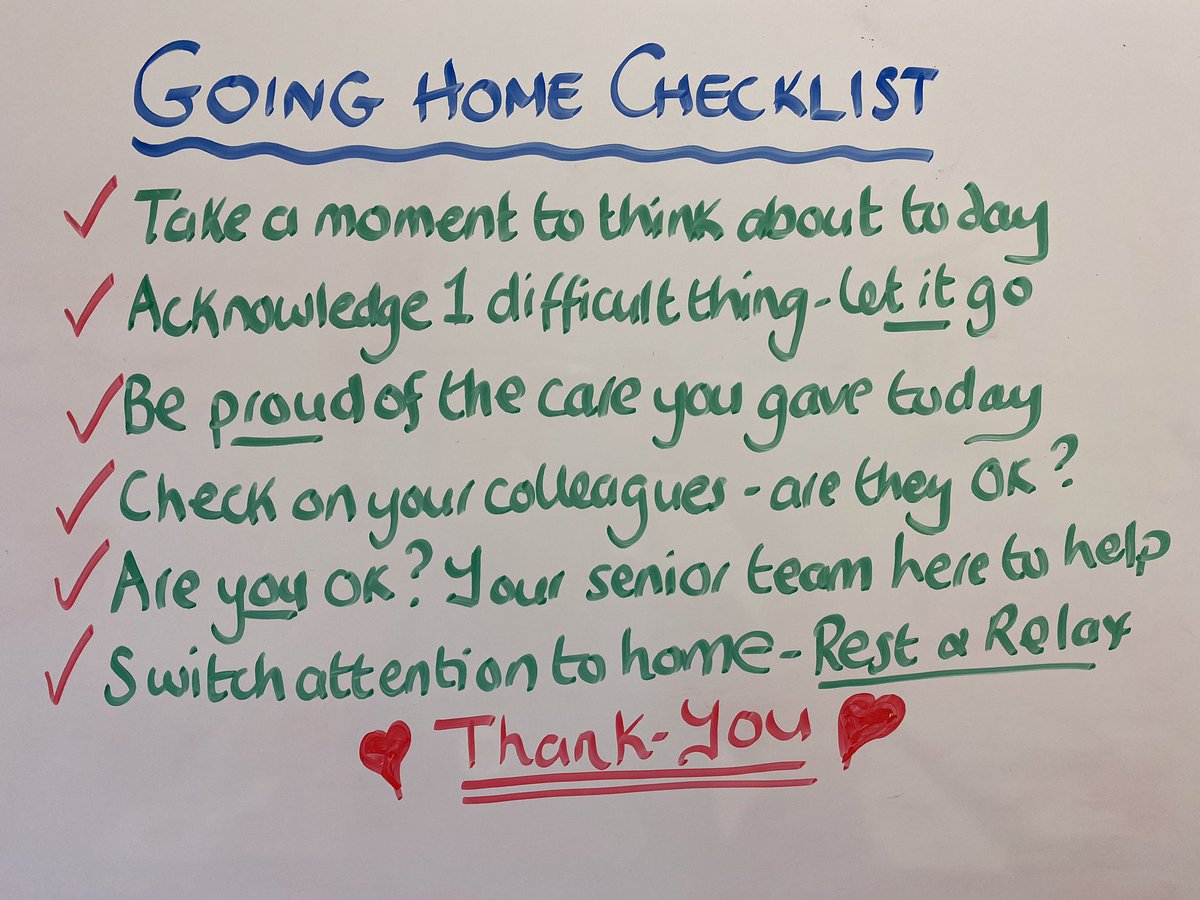 GOING HOME CHECKLIST
✓ Take a moment to think about today
✓ Acknowledge 1 difficult thing - let it go
✓ Be proud of the care you gave today
✓ Check on your colleagues - are they OK?
✓ Are you OK? Your senior team here to help
✓ Switch attention to home - Rest & Relax
Thank-You